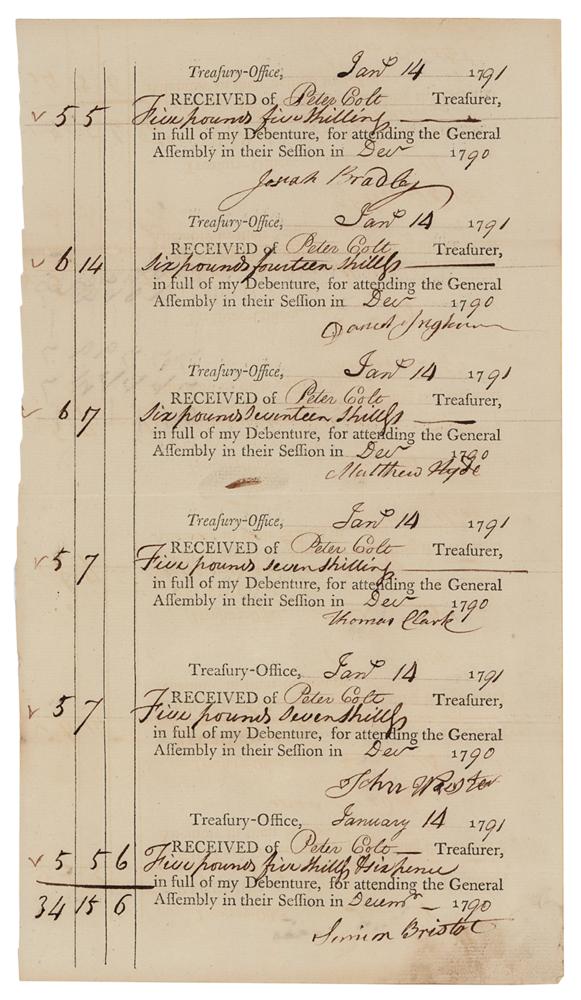 Treasury-Office, Jan.y 14 1791
RECEIVED of Peter Colt Treasurer,
√ 5 5 Five pounds five shilling
in full of my Debenture, for attending the General
Assembly in their Session in Decr 1790
Josiah Bradley
Treasury-Office, Jan.y 14 1791
RECEIVED of Peter Colt Treasurer,
√ 6 14 six pounds fourteen shills
in full of my Debenture, for attending the General
Assembly in their Session in Decr 1790
Daniel Ingham
Treasury-Office, Jan.y 14 1791
RECEIVED of Peter Colt Treasurer,
√ 6 17 six pounds seventeen shills
in full of my Debenture, for attending the General
Assembly in their Session in Decr 1790
Matthew Hyde
Treasury-Office, Jan.y 14 1791
RECEIVED of Peter Colt Treasurer,
√ 5 7 Five pounds seven shilling
in full of my Debenture, for attending the General
Assembly in their Session in Decr 1790
Thomas Clark
Treasury-Office, Jan.y 14 1791
RECEIVED of Peter Colt Treasurer,
√ 5 7 Five pounds seven shills
in full of my Debenture, for attending the General
Assembly in their Session in Decr 1790
John Webster
Treasury-Office, January 14 1791
RECEIVED of Peter Colt Treasurer,
√ 5 5 6 Five pounds five shills & sixpence
in full of my Debenture, for attending the General
Assembly in their Session in Decemr 1790
34 15 6
Simeon Bristol